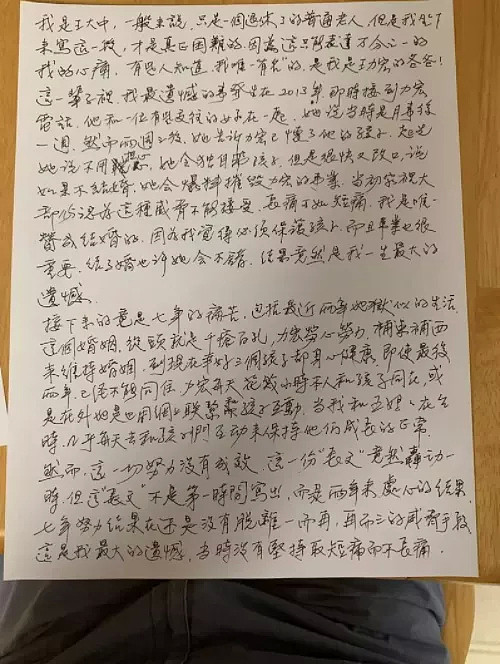 我是王大中，一般來說，只是一個退休了的普通老人，但是我坐下
來寫這一機，才是真正困難的。因為這只能表達万分之一的
我的心痛。有些人知道，我唯一"有名"的，是我是王力宏的爸爸！
這一輩子裡，我最遺憾的事發生在2013年，那時接到力宏
電話，他和一位有些交往的女子在一起，她說當時是月事後
一週，然而兩個禮拜後，她告訴力宏已懷了他的孩子。起先
她說不用擔心，她會獨自養孩子，但是很快又改口，說
如果不結婚，她會爆料摧毀力宏的事業。當初家裡大
部份認為這種威脅不能接受，長痛不如短痛。我是唯一
贊成結婚的，因為我覺得必須保護孩子，而且事業也很
重要，結了婚也许她會不錯。結果竟然是我一生最大的
遺憾。
接下來的竟是七年的痛苦，包括最近兩年地獄似的生活。
這個婚姻，從頭就是千瘡百孔，力宏勞心勞力，補東補西
來維持婚姻。到現在幸好三個孩子都身心健康，即使最後
兩年，已经不能同住，力宏每天花幾小時本人和孩子同在，或
是在外地也用網上联繫跟孩子互動。當我和五妞、在台
時，几乎每天去和孩子們互动来保持他們成長的正常。
然而，這一切努力没有成效，這一份"長文"竟然轟动一
時，但這"長文"不是第一時間寫出，而是兩年来處心的結果。
七年努力結果在不是没有脫離一而再，再而三的威脅手段
這是我最大的遺憾，當時沒有堅持取短痛而不長痛.